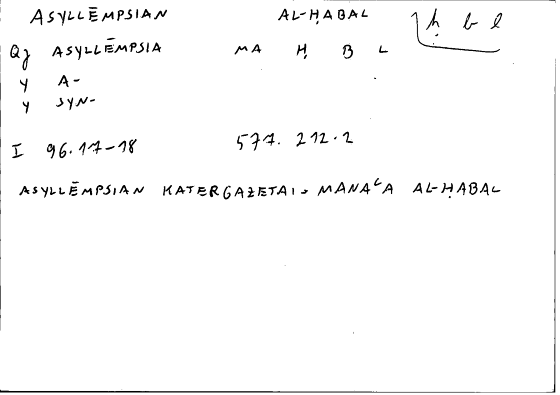 ASYLLĒMPSIAN AL-ḤABAL ḥ b l
Qz ASYLLĒMPSIA MA Ḥ B L
Y A-
Y SYN-
I 96.17-18 577. 212.2
ASYLLĒMPSIAN KATERGAZETAI, MANAʿA AL-ḤABAL